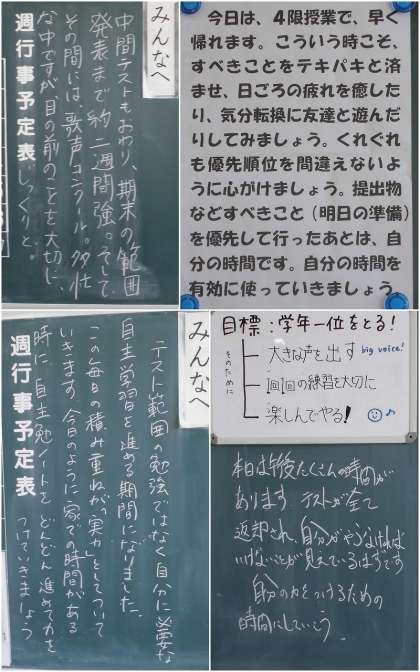 みんなへ
中間テストもおわり、期末の範囲
発表まで約二週間強。そして
その間には、歌声コンクール。多忙
な中ですが、目の前のことを大切に、
じっくりと。
週行事予定表
今日は、４限授業で、早く
帰れます。こういう時こそ、
すべきことをテキパキと済
ませ、日ごろの疲れを癒した
り、気分転換に友達と遊んだ
りしてみましょう。くれぐれ
も優先順位を間違えないよ
うに心がけましょう。提出物
などすべきこと（明日の準備）
を優先して行ったあとは、自
分の時間です。自分の時間を
有効に使っていきましょう。
みんなへ
テスト範囲の勉強ではなく自分に必要な
自主学習を進める期間になりました。
この毎日の積み重ねが、「実力」としてついて
いきます。今日のように家での時間がある
時に、自主勉ノートをどんどん進めて力を
つけていきましょう
週行事予定表
目標：学年一位をとる！
そのために
大きな声を出す big voice!
1回1回の練習を大切に
楽しんでやる！
本日は午後たくさんの時間が
あります テストが全て
返却され、自分がやらなければ
いけないことが見えているはずです
自分の力をつけるための
時間にしていこう